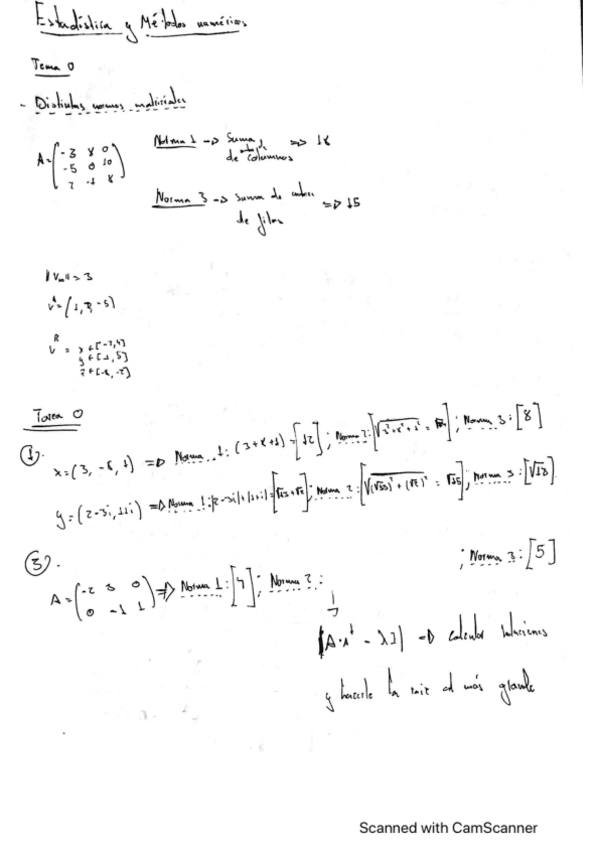 Estadística y Métodos numéricos
Tema 0
- Distintas normas matriciales
A = ( -3 8 0 Norma 1 -> Suma de columnas => 18
-5 0 10
2 -1 8 )
Norma 3 -> Suma de de filas => 15
= 3
v = (1, 3, -5)
v = x ∈ [-2,4]
y ∈ [-1,5]
z ∈ [-8,-2]
Tarea 0
①. x = (3, -8, 1) => Norma 1: (3+8+1) = [12] ; Norma 2: ; Norma 3: [8]
y = (2-3i, 1+i) => Norma 1: |2-3i|+|1+i| = [√13+√2] ; Norma 2: = √15] ; Norma 3: [√13]
③. A = ( -2 3 0 => Norma 1: [4] ; Norma 2: ; Norma 3: [5]
0 -1 1 )
- λI| -> calcular soluciones
y hacerle la raiz al más grande
Scanned with CamScanner